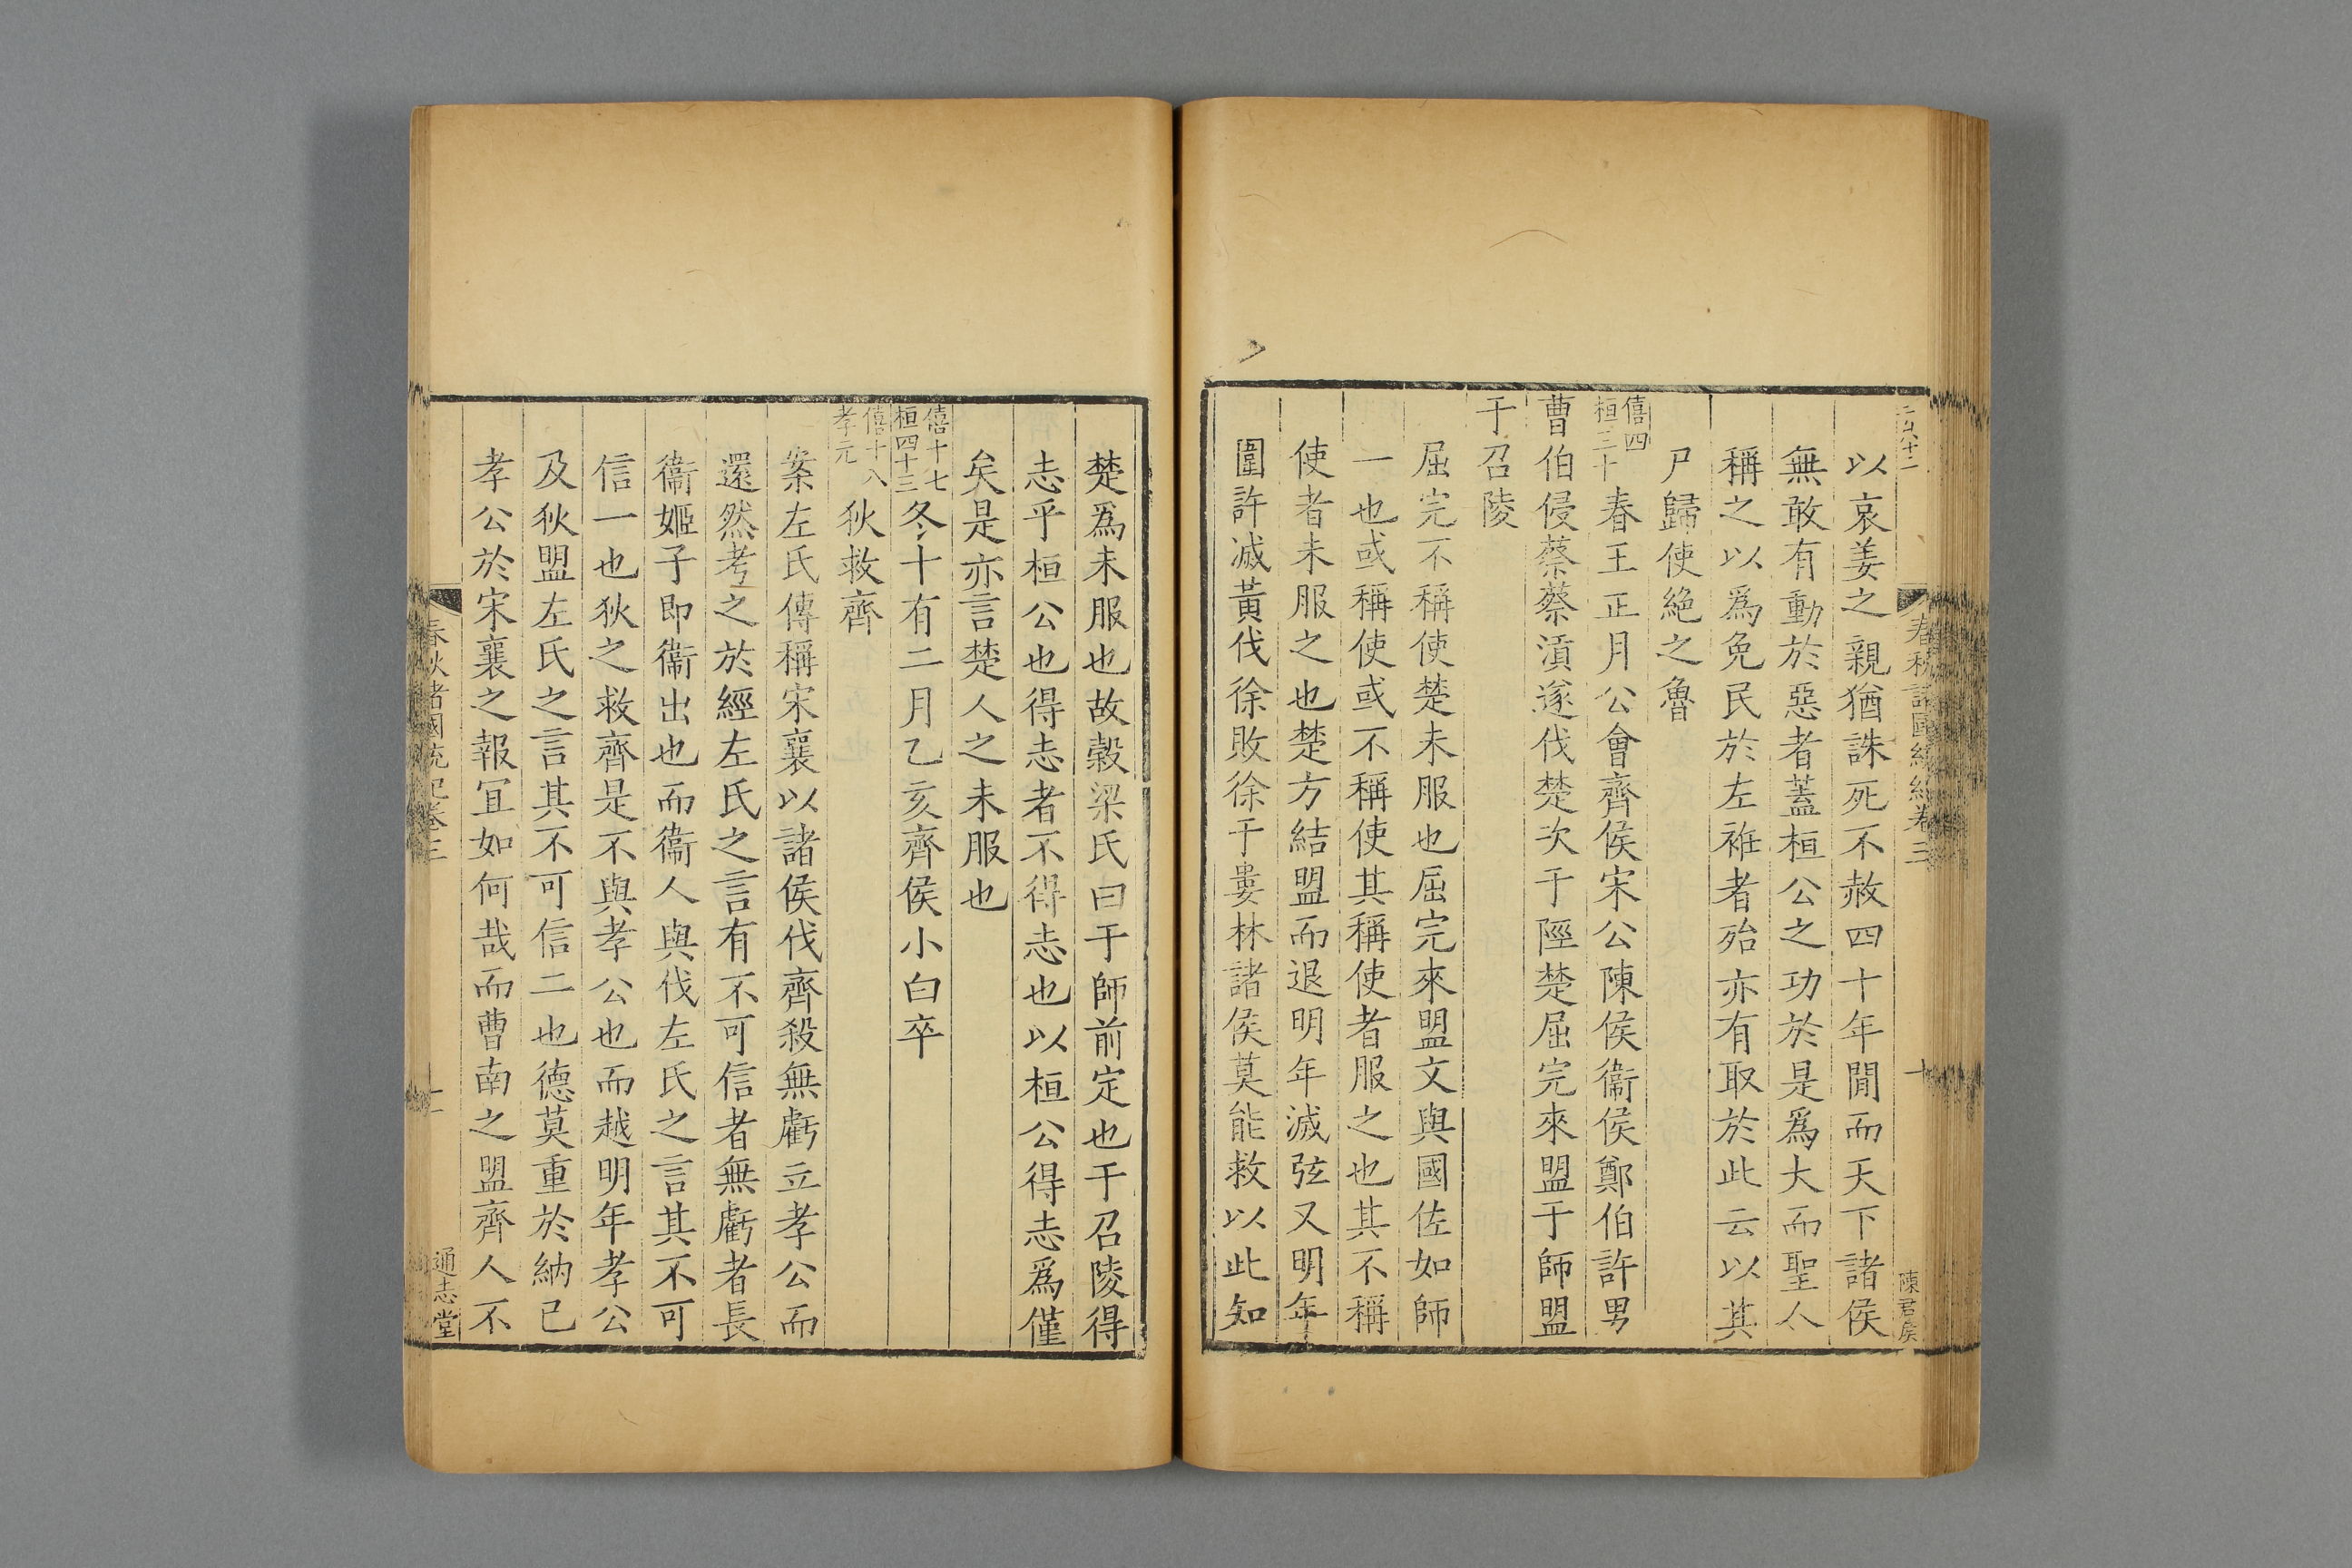 春秋諸國統紀卷三
十
陳君侯
以哀姜之親猶誅死不赦四十年閒而天下諸侯
無敢有動於惡者蓋桓公之功於是爲大而聖人
稱之以爲免民於左袵者殆亦有取於此云以其
尸歸使絶之魯
僖四
桓三十
春王正月公會齊侯宋公陳侯衞侯鄭伯許男
曹伯侵蔡蔡潰遂伐楚次于陘楚屈完來盟于師盟
于召陵
屈完不稱使楚未服也屈完來盟文與國佐如師
一也或稱使或不稱使其稱使者服之也其不稱
使者未服之也楚方結盟而退明年滅弦又明年
圍許滅黃伐徐敗徐于婁林諸侯莫能救以此知
楚爲未服也故穀梁氏曰于師前定也于召陵得
志乎桓公也得志者不得志也以桓公得志爲僅
矣是亦言楚人之未服也
僖十七
桓四十三
冬十有二月乙亥齊侯小白卒
僖十八
孝元
狄救齊
案左氏傳稱宋襄以諸侯伐齊殺無虧立孝公而
還然考之於經左氏之言有不可信者無虧者長
衞姬子即衞出也而衞人與伐左氏之言其不可
信一也狄之救齊是不與孝公也而越明年孝公
及狄盟左氏之言其不可信二也德莫重於納已
孝公於宋襄之報宜如何哉而曹南之盟齊人不
春秋諸國統紀卷三
十一
通志堂